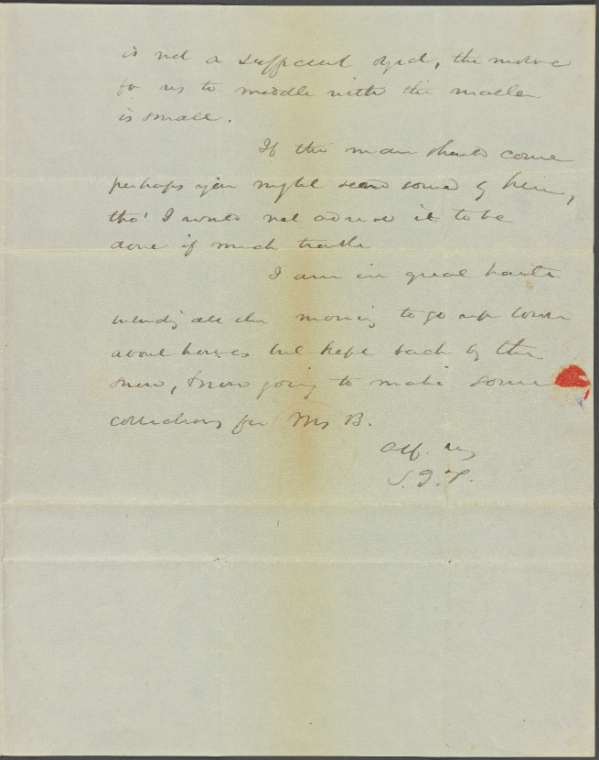 is not a sufficient object, the motive
for us to meddle with the matter
is small.
If the man should come
perhaps you might send some by him,
tho' I would not advise it to be
done if much trouble
I am in great haste
all the morning to go up town
about houses but kept back by the
snow, & now going to make some
collections for Mrs B.
Aff. 
S. J. T.